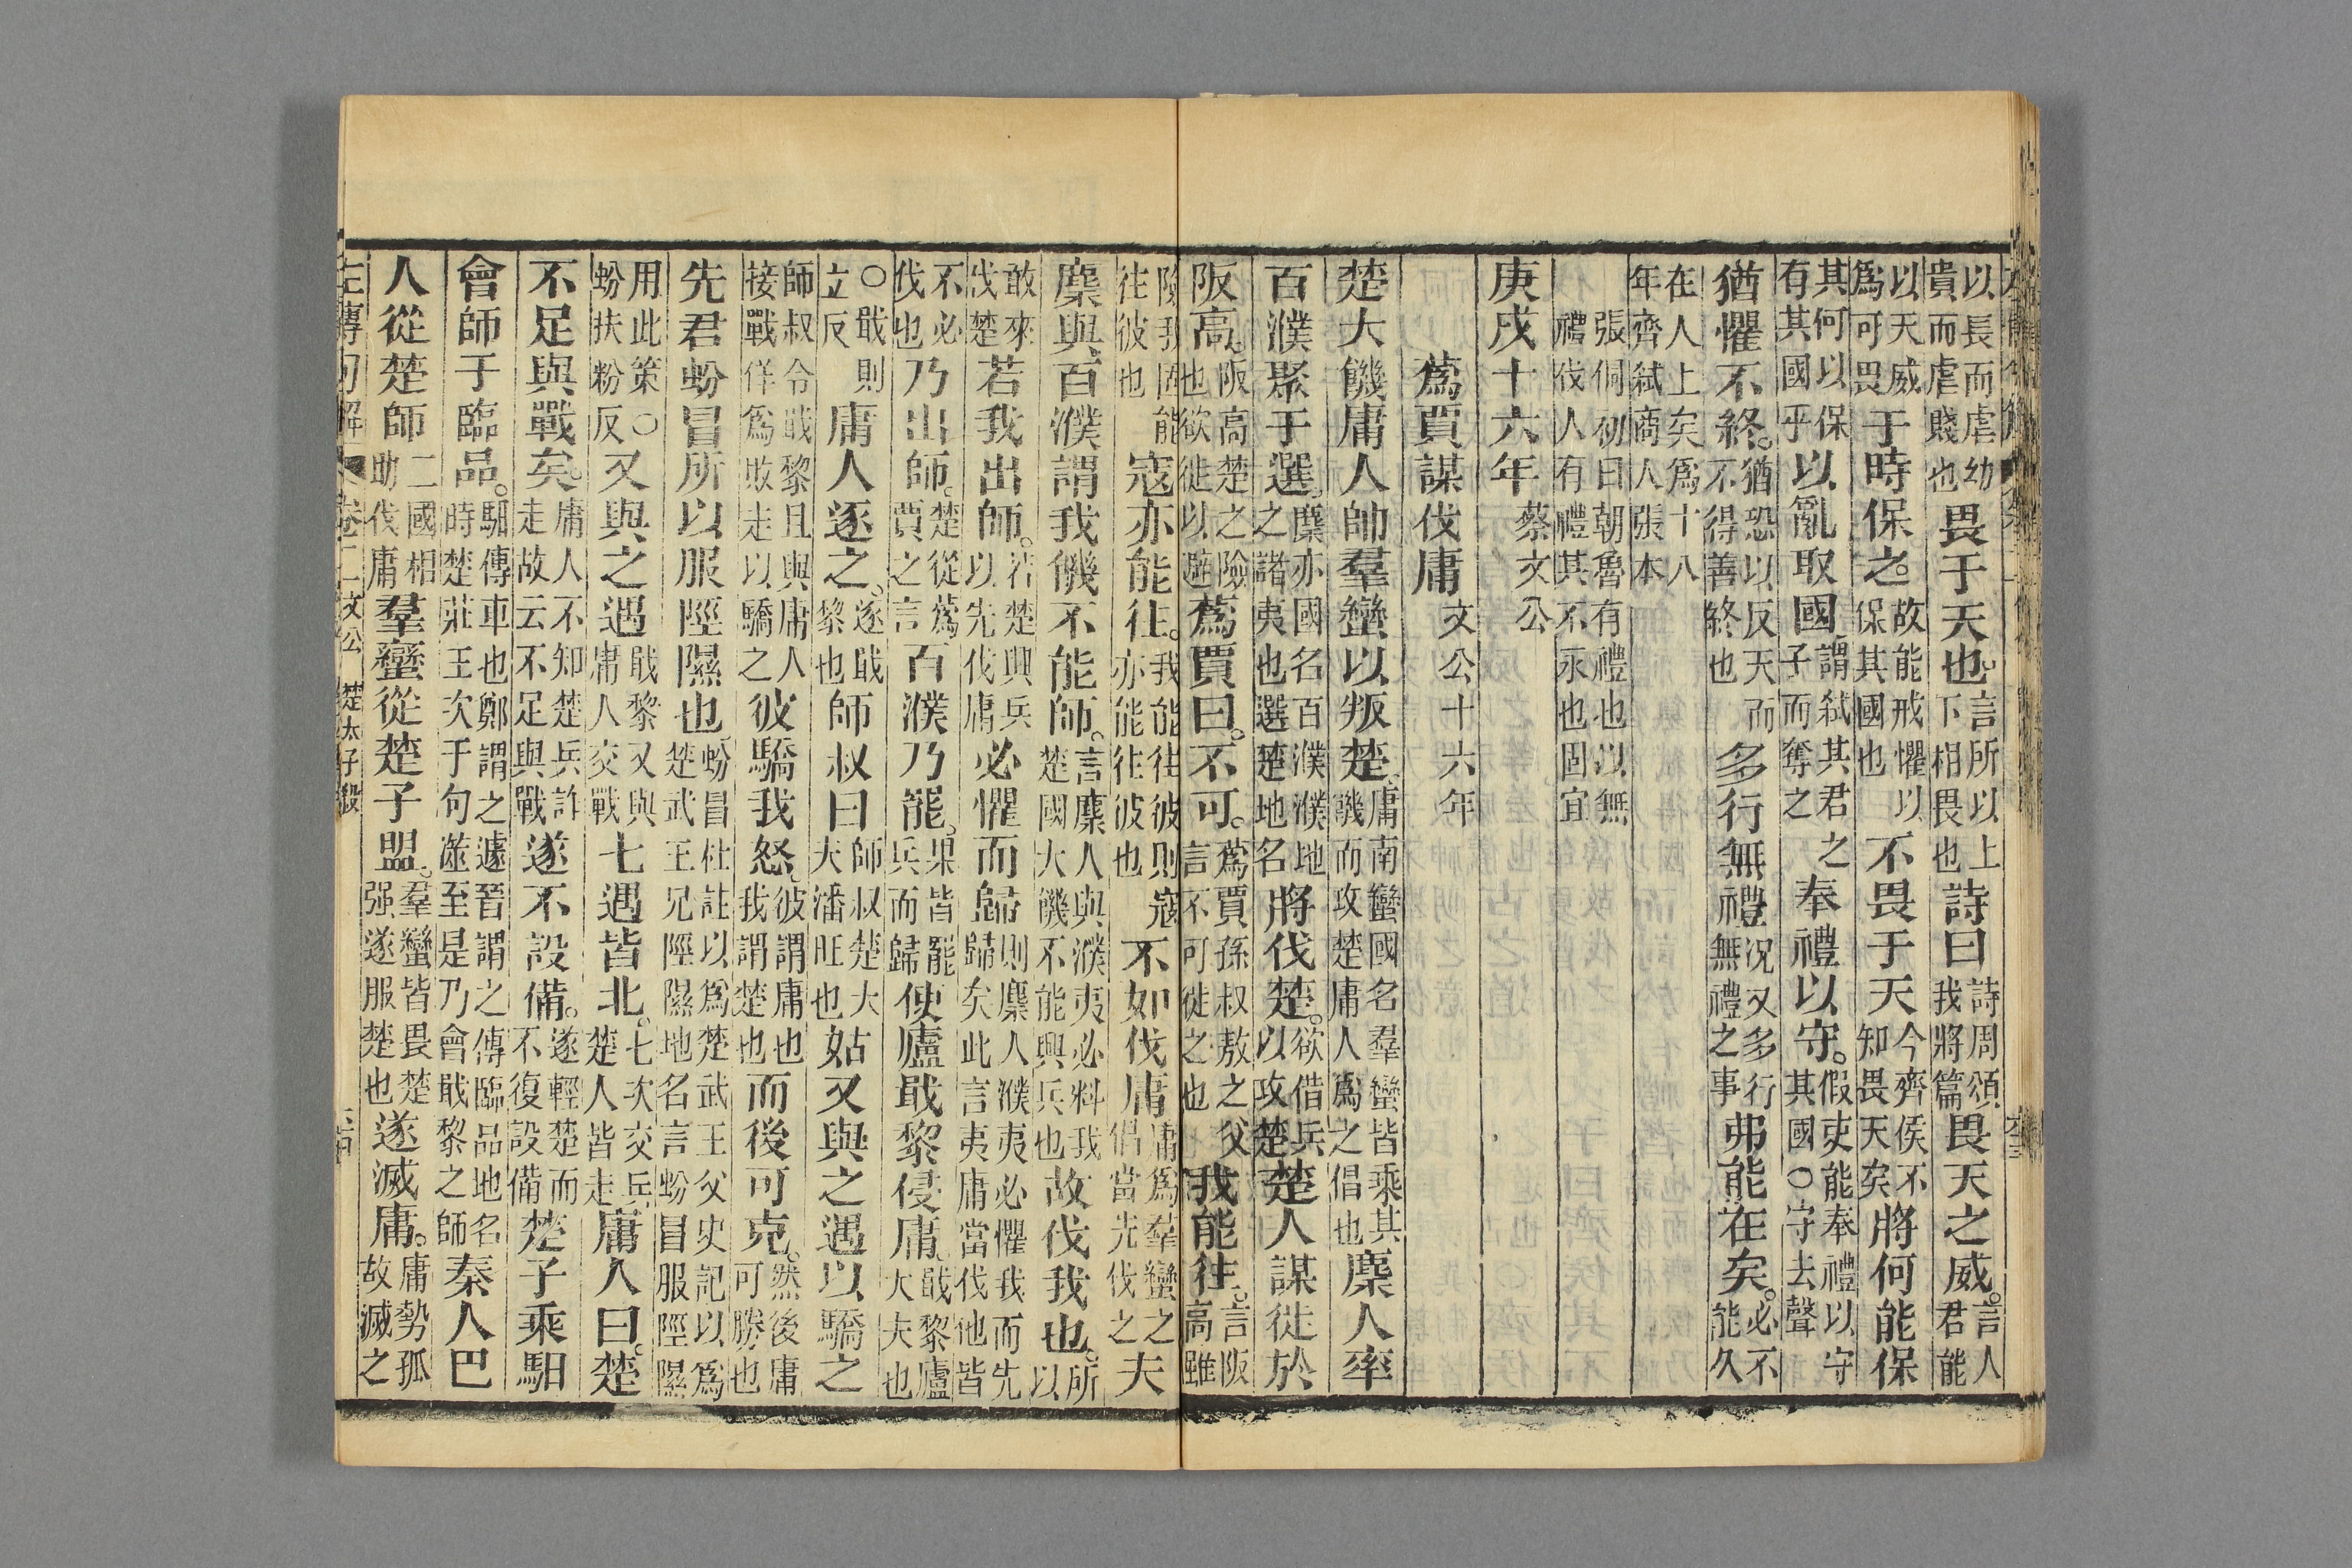 以長而虐幼貴而虐賤也畏于天也。言所以上下相畏也詩曰詩周頌我將篇畏天之威。言人君能
以天威爲可畏于時保之。故能戒懼以保其國也不畏于天今齊侯不知畏天矣將何能保
其何以保有其國乎以亂取國。謂弑其君之子而奪之奉禮以守。假吏能奉禮以守其國○守去聲
猶懼不終。猶恐以反天而不得善終也多行無禮况又多行無禮之事弗能在矣。必不能久
在人上矣爲十八年齊弑商人張本
張侗初曰朝魯有禮也以無禮伐人有禮其不永也固宜
庚戌十六年蔡文公
蔿賈謀伐庸文公十六年
楚大饑庸人帥羣蠻以叛楚。庸南蠻國名羣蠻皆乘其饑而攻楚庸人爲之倡也麇人率
百濮聚于選。麇亦國名百濮濮地之諸夷也選楚地名將伐楚。欲借兵以攻楚楚人謀徙於
阪高。阪高楚之險也欲徙以避蔿賈曰。不可。蔿賈孫叔敖之父言不可徙之也我能往。言阪高雖
險我固能往彼也寇亦能往。我能往彼則寇亦能往彼也不如伐庸庸爲羣蠻之倡當先伐之夫
麇與百濮謂我饑不能師。言麇人與濮夷必料我楚國大饑不能興兵也故伐我也。所以
敢來伐楚若我出師。若楚興兵以先伐庸必懼而歸則麇人濮夷必懼我而先歸矣此言夷庸當伐他皆
不必伐也乃出師。楚從蔿賈之言百濮乃罷。果皆罷兵而歸使廬戢黎侵庸。戢黎廬大夫也
○戢則立反庸人逐之。逐戢黎也師叔曰師叔楚大夫潘尫也姑又與之遇以驕之
師叔令戢黎且與庸人接戰佯爲敗走以驕之彼驕我怒。彼謂庸也我謂楚也而後可克。然後庸可勝也
先君蚡冒所以服陘隰也蚡冒杜註以爲楚武王父史記以爲楚武王兄陘隰地名言蚡冒服陘隰
用此策○蚡扶粉反又與之遇戢黎又與庸人交戰七遇皆北。七次交兵楚人皆走庸人曰。楚
不足與戰矣。庸人不知楚兵詐走故云不足與戰遂不設備。遂輕楚而不復設備楚子乘馹
會師于臨品。馹傳車也鄭謂之遽晉謂之傳臨品地名時楚莊王次于句澨至是乃會戢黎之師秦人巴
人從楚師二國相助伐庸羣蠻從楚子盟。羣蠻皆畏楚强遂服楚也遂滅庸。庸勢孤故滅之
左傳句解 卷二 文公 楚太子殷